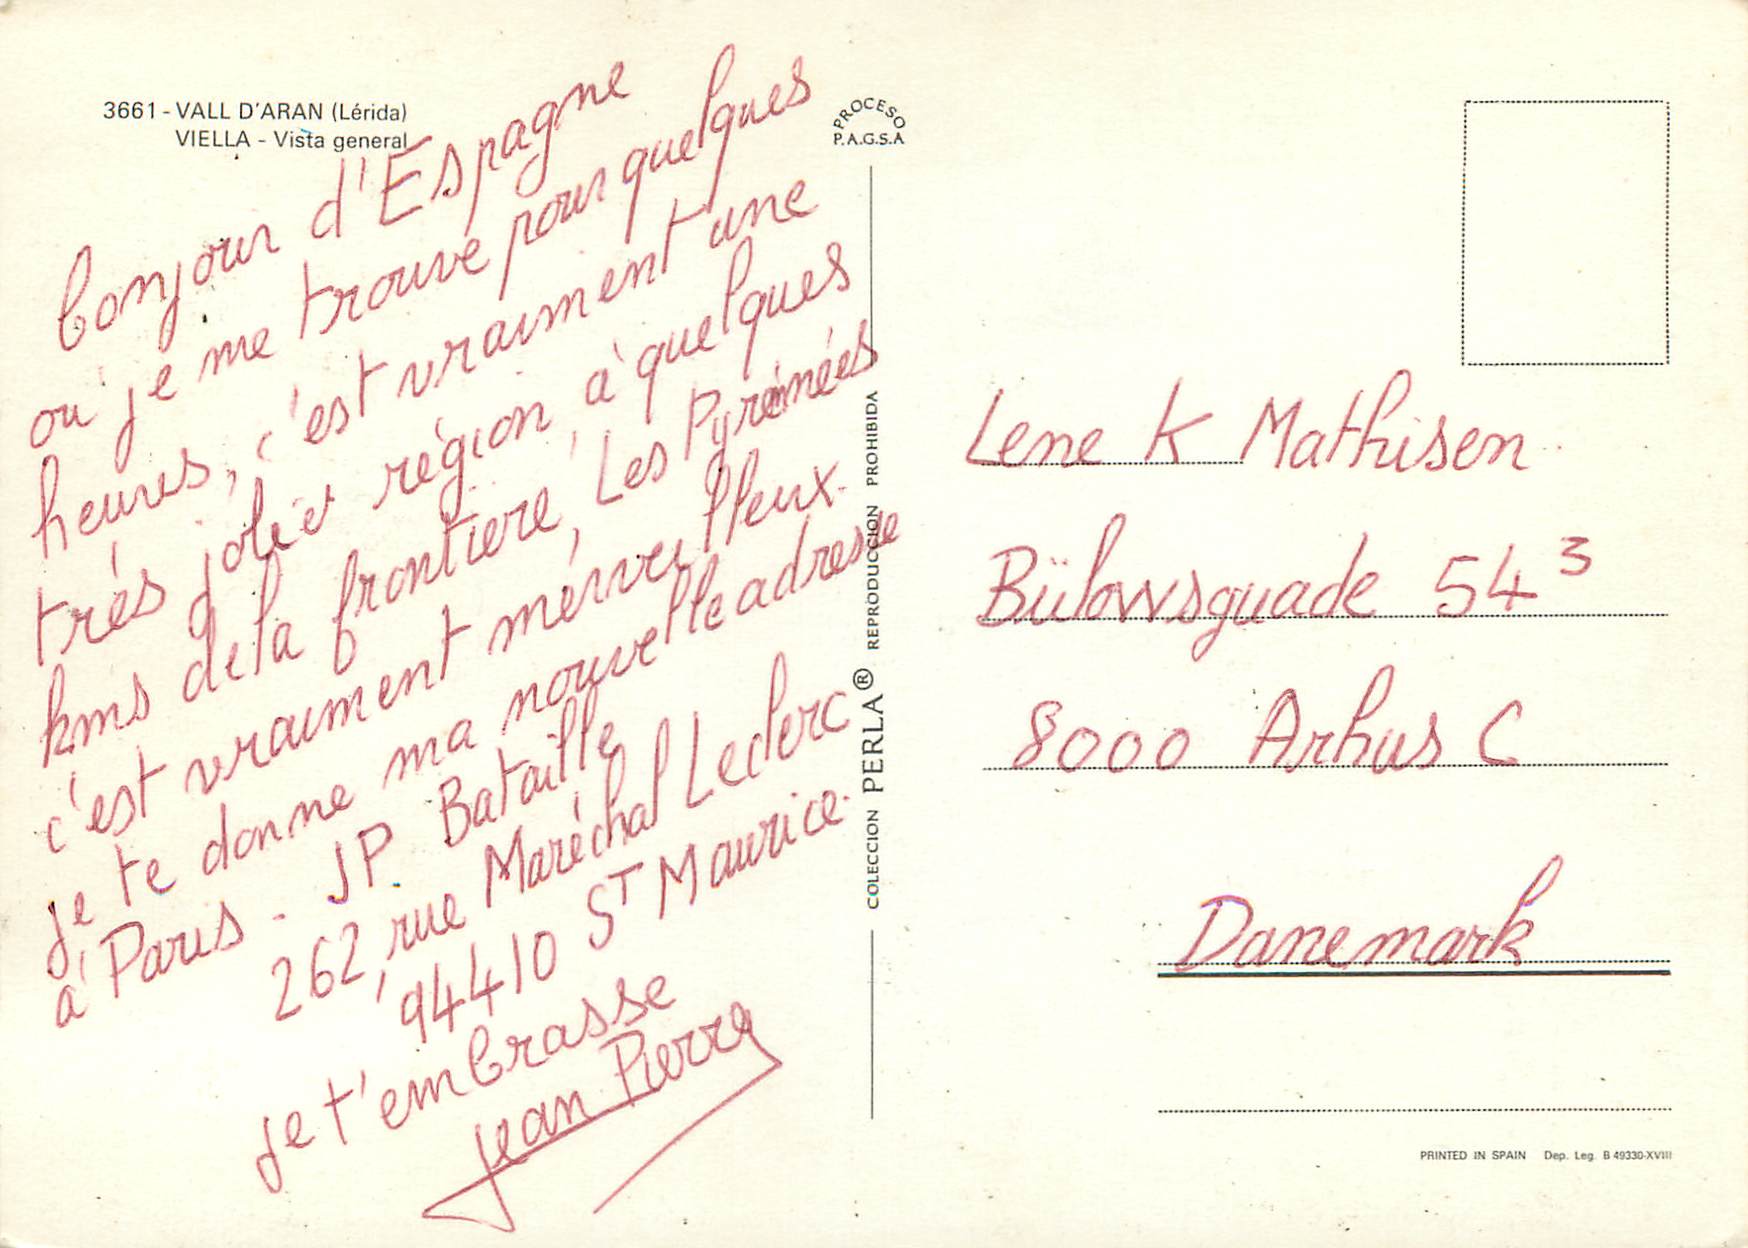 3661 - VALL D'ARAN (Lérida)
VIELLA - Vista general
bonjour d'Espagne
ou' je me trouve pour quelques
heures, c'est vraiment une
trés jolie région, à quelques
kms de la frontiere, Les Pyrénées
c'est vraiment mérveilleux.
je te donne ma nouvelle adresse
à Paris - JP. Bataille
262, rue Maréchal Leclerc
94410 ST Maurice.
je t'embrasse
Jean Pierre
PROCESO
P.A.G.S.A
COLECCION PERLA® REPRODUCCION PROHIBIDA
Lene K Mathisen
Bülowsguade 54 3
8000 Arhus C
Danemark
PRINTED IN SPAIN Dep. Leg. B 49330-XVIII